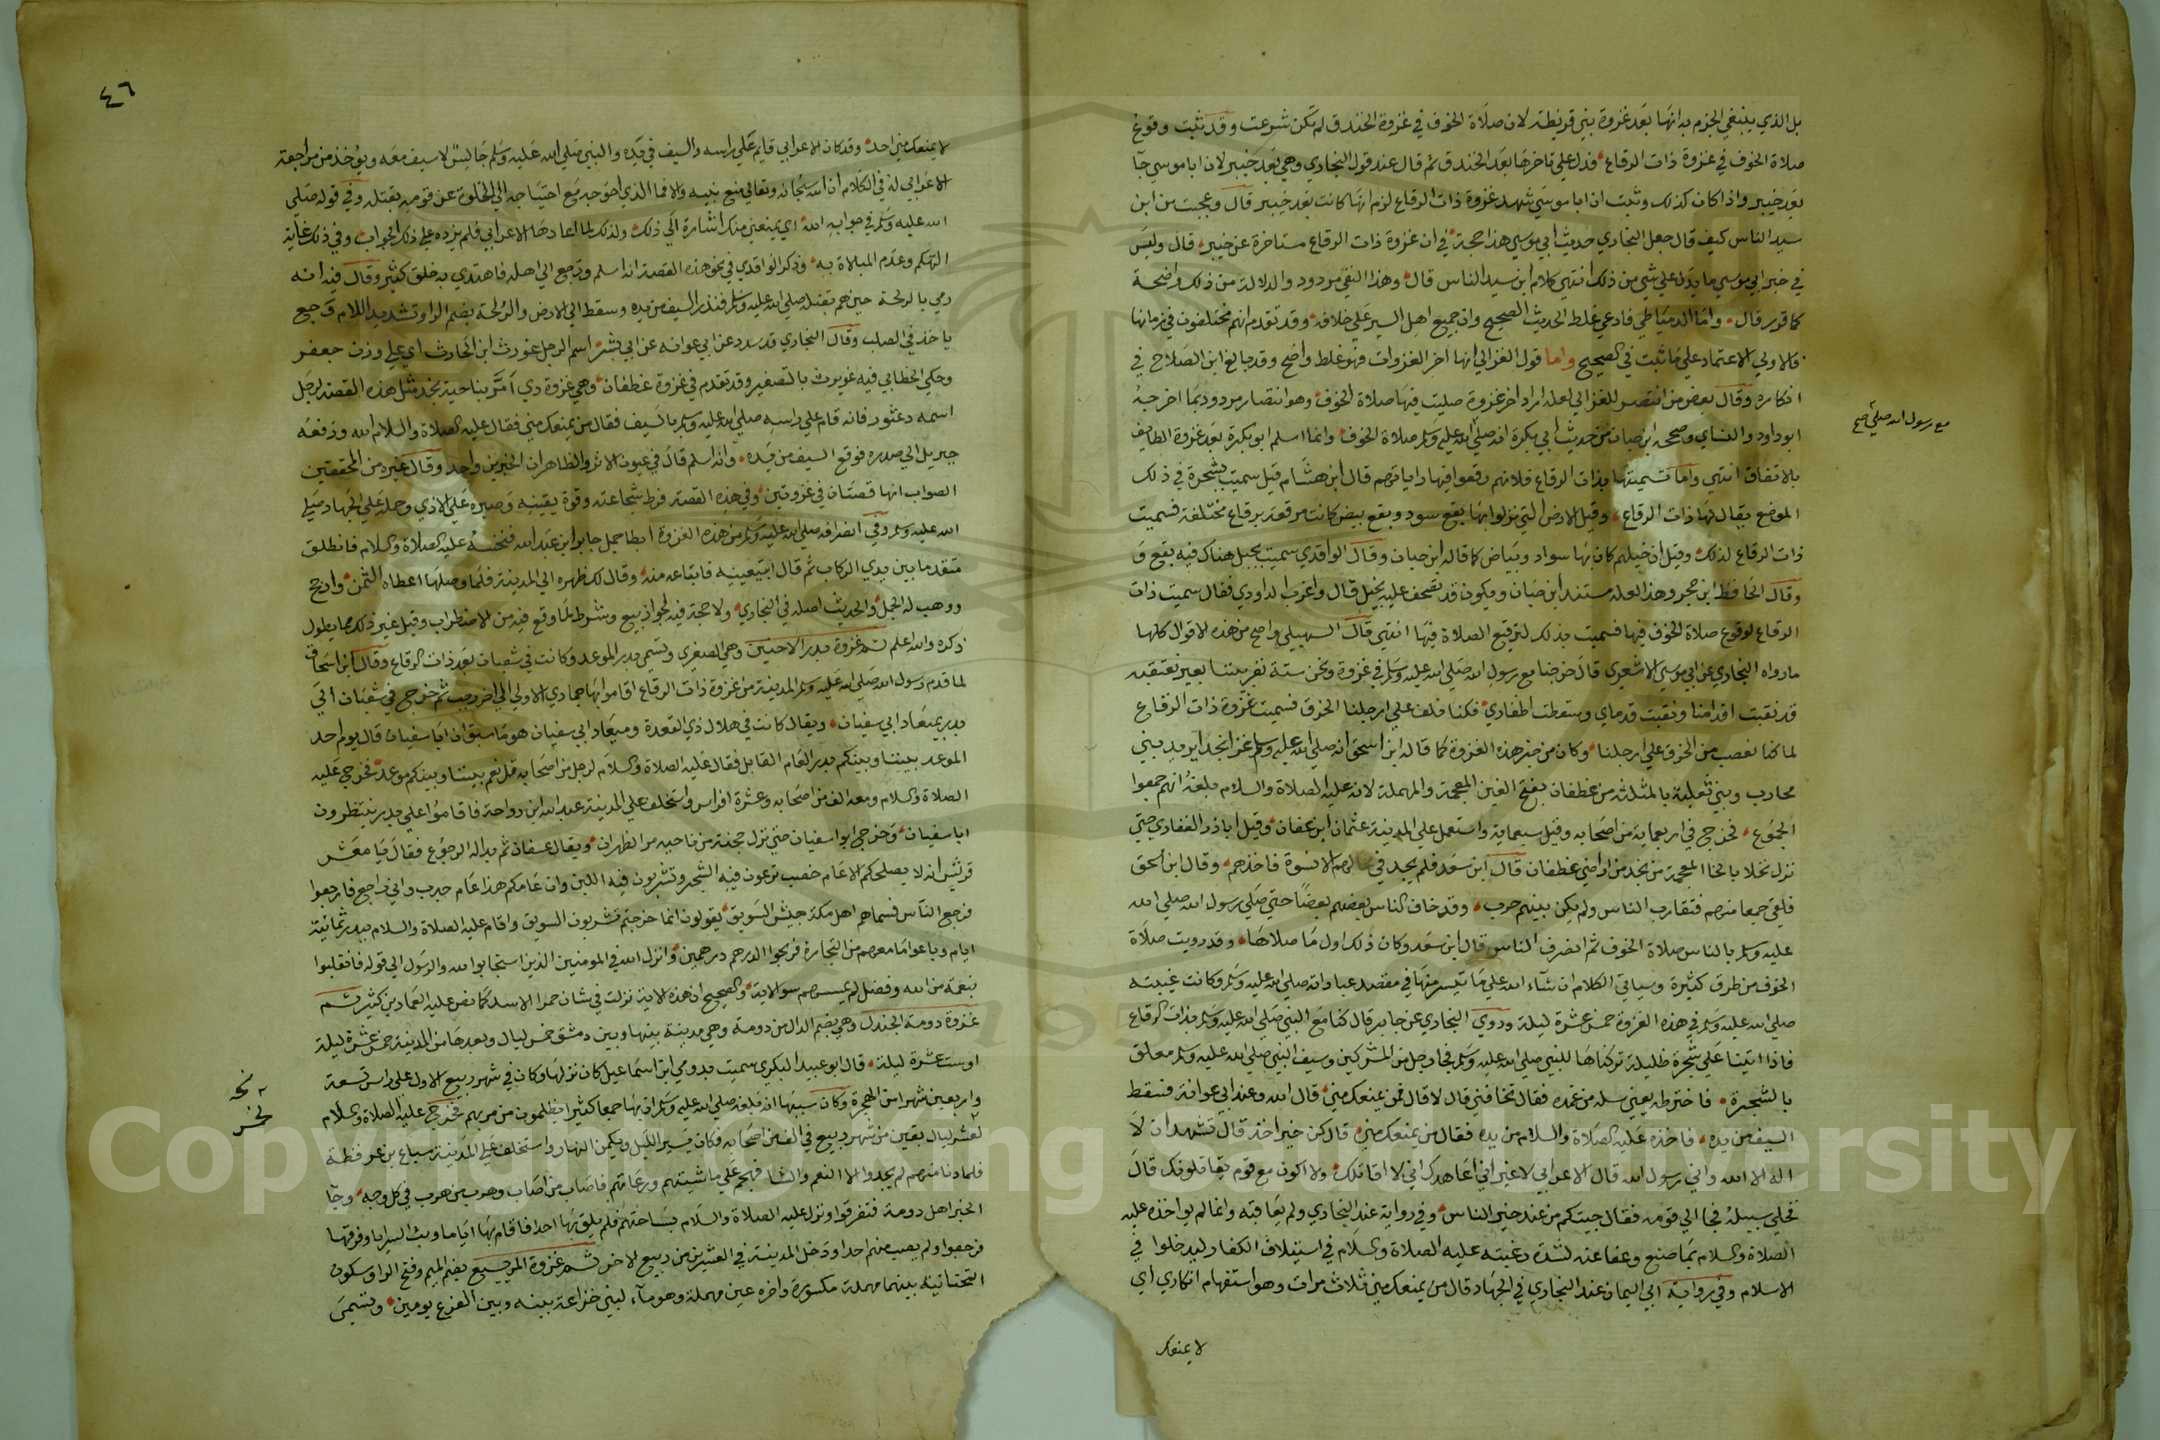 بل الذي ينبغي الجزم به انها بعد غزوة بني قريظة لان صلاة الخوف في غزوة الخندق لم تكن شرعت وقد ثبت وقوع
صلاة الخوف في غزوة ذات الرقاع فدل على تاخرها بعد الخندق ثم قال عند قول البخاري وهي بعد خيبر لان ابا موسى جا
بعد خيبر واذا كان كذلك وثبت ان ابا موسي شهد غزوة ذات الرقاع لزم انها كانت بعد خيبر قال وعجبت من ابن
سيد الناس كيف قال جعل البخاري حديث ابي موسي هذا حجة في ان غزوة ذات الرقاع متاخرة عن خيبر قال وليس
في خبر ابي موسي ما يدل علي شي من ذلك انتهي كلام ابن سيد الناس قال وهذا النفي مردود والدلالة من ذلك واضحة
كما قدر قال واما الدمياطي فادعي غلط الحديث الصحيح وان جميع اهل السير علي خلافه وقد تقدم انهم مختلفون في زمانها
فالاولي الاعتماد علي ما ثبت في الصحيح واما قول الغزالي انها اخر الغزوات فهو غلط واضح وقد بالغ ابن الصلاح في
انكاره وقال بعض من انتصر للغزالي لعله اراد اخر غزوة صليت فيها صلاة الخوف وهو انتصار مردود بما اخرجه
مع رسول الله صلى صح
ابو داود والنساي وصححه ابن حبان من حديث ابي بكرة انه صلي الله عليه وسلم صلاة الخوف وانما اسلم ابو بكرة بعد غزوة الطايف
بالاتفاق انتهي واما تسميتها بذات الرقاع فلانهم رقعوا فيها راياتهم قال ابن هشام قيل سميت بشجرة في ذلك
الموضع يقال لها ذات الرقاع وقيل الارض التي نزلوا بها بقع سود وبقع بيض كانت مرقعة برقاع مختلفة فسميت
ذات الرقاع لذلك وقيل ان خيلهم كان بها سواد وبياض كما قاله ابن حبان وقال الواقدي سميت بجبل هناك فيه بقع و
وقال الحافظ ابن حجر وهذا لعله مستند ابن حبان ويكون قد تصحف عليه بخيل قال واغرب الداودي فقال سميت ذات
الرقاع لوقوع صلاة الخوف فيها فسميت بذلك لترقيع الصلاة فيها انتهي قال السهيلي واصح من هذه الاقوال كلها
مارواه البخاري عن ابي موسي الاشعري قال خرجنا مع رسول الله صلي الله عليه وسلم في غزوة ونحن ستة نفر بيننا بعير نعتقبه
قد نقبت اقدامنا ونقبت قدماي وسقطت اظفاري فكنا نلف علي ارجلنا الخرق فسميت غزوة ذات الرقاع
لما كنا نعصب من الخرق علي ارجلنا وكان من خبر هذه الغزوة كما قاله ابن اسحق انه صلي الله عليه وسلم غزا نجدا يريد بني
محارب وبني ثعلبة بالمثلثة من غطفان بفتح الغين المعجمة والمهملة لانه عليه الصلاة والسلام بلغه انهم جمعوا
الجموع فخرج في اربعماية من اصحابه وقيل سبعماية واستعمل علي المدينة عثمان ابن عفان وقيل ابا ذر الغفاري حتي
نزل نخلا بالخا المعجمة من نجد من اراضي غطفان قال ابن سعد فلم يجد في محالهم الا نسوة فاخذهم وقال ابن اسحق
فلقي جمعا منهم فتقارب الناس ولم يكن بينهم حرب وقد خاف الناس بعضهم بعضا حتي صلي رسول الله صلي الله
عليه وسلم بالناس صلاة الخوف ثم انصرف الناس قال ابن سعد وكان ذلك اول ما صلاها وقد رويت صلاة
الخوف من طرق كثيرة وسياتي الكلام ان شاء الله علي ما تيسر منها في مقصد عباداته صلي الله عليه وسلم وكانت غيبته
صلي الله عليه وسلم في هذه الغزوة خمس عشرة ليلة وروي البخاري عن جابر قال كنا مع النبي صلي الله عليه وسلم بذات الرقاع
فاذا اتينا علي شجرة ظليلة تركناها للنبي صلي الله عليه وسلم فجا رجل من المشركين وسيف النبي صلي الله عليه وسلم معلق
بالشجرة فاخترطه يعني سله من غمده فقال تخافني قال لا قال فمن يمنعك مني قال الله وعند ابي عوانة فسقط
السيف من يده فاخذه عليه الصلاة والسلام من يده فقال من يمنعك مني قال كن خير اخذ قال تشهد ان لا
اله الا الله واني رسول الله قال الاعرابي لا غير اني اعاهدك اني لا اقاتلك ولا اكون مع قوم يقاتلونك قال
فخلي سبيله فجا الي قومه فقال جيتكم من عند خير الناس وفي رواية عند البخاري ولم يعاقبه وانما لم يواخذه عليه
الصلاة والسلام بما صنع وعفا عنه لشدة رغبته عليه الصلاة والسلام في استيلاف الكفار ليدخلوا في
الاسلام وفي رواية ابي اليمان عند البخاري في الجهاد قال من يمنعك مني ثلاث مرات وهو استفهام انكاري اي
لا يمنعك
٤٦
لا يمنعك مني احد وقد كان الاعرابي قايم علي راسه والسيف في يده والنبي صلي الله عليه وسلم جالس لا سيف معه ويؤخذ من مراجعة
الاعرابي له في الكلام ان الله سبحانه وتعالي منع نبيه والا فما الذي احوجه مع احتياجه الي الحظوة عن قومه بقتله وفي قوله صلي
الله عليه وسلم في جوابه الله اي يمنعني منك اشارة الي ذلك ولذلك لما اعادها الاعرابي فلم يزده علي ذلك الجواب وفي ذلك غاية
التهكم وعدم المبالاة به وذكر الواقدي في نحو هذه القصة انه اسلم ورجع الي اهله فاهتدي به خلق كثير وقال فيه انه
رمي بالزلخة حين هم بقتله صلي الله عليه وسلم فندر السيف من يده وسقط الي الارض والزلخة بضم الزا وتشديد اللام وجع
ياخذ في الصلب وقال البخاري قد سدد عن ابي عوانه عن ابي بشر اسم الرجل غورث ابن الحارث اي علي وزن جعفر
وحكي الخطابي فيه غويرث بالتصغير وقد تقدم في غزوة غطفان وهي غزوة ذي امر بناحية نجد مثل هذه القصة لرجل
اسمه دعثور فانه قام علي راسه صلي الله عليه وسلم بالسيف فقال من يمنعك مني فقال عليه الصلاة والسلام الله ودفعه
جبريل الي صدره فوقع السيف من يده وانه اسلم قال في عيون الاثر والظاهر ان الخبرين واحد وقال غيره من المحققين
الصواب انها قصتان في غزوتين وفي هذه القصة فرط شجاعته وقوة يقينه وصبره علي الاذي وحلمه علي الجهاد صلي
الله عليه وسلم وفي انصرافه صلي الله عليه وسلم من هذه الغزوة ابطا جمل جابر ابن عبد الله فنخسه عليه الصلاة والسلام فانطلق
متقدما بين يدي الركاب ثم قال اتبيعنيه فابتاعه منه وقال لك ظهره الي المدينة فلما وصلها اعطاه الثمن وارجح
ووهب له الجمل والحديث اصله في البخاري ولا حجة فيه لجواز بيع وشرط لما وقع فيه من الاضطراب وقيل غير ذلك مما يطول
ذكره والله اعلم ثم غزوة بدر الاخيرة وهي الصغري وتسمي بدر الموعد وكانت في شعبان بعد ذات الرقاع وقال ابن اسحاق
لما قدم رسول الله صلي الله عليه وسلم المدينة من غزوة ذات الرقاع اقام بها جمادي الاولي الي اخر رجب ثم خرج في شعبان الي
بدر بميعاد ابي سفيان ويقال كانت في هلال ذي القعدة وميعاد ابي سفيان هو ما سبق ان ابا سفيان قال يوم احد
الموعد بيننا وبينكم بدر العام القابل فقال عليه الصلاة والسلام لرجل من اصحابه قل نعم بيننا وبينكم موعد فخرج عليه
الصلاة والسلام ومعه الف من اصحابه وعشرة افراس واستخلف علي المدينة عبد الله ابن رواحة فاقاموا علي بدر ينتظرون
ابا سفيان وخرج ابو سفيان حتي نزل مجنة من ناحية مر الظهران ويقال عسفان ثم بدا له الرجوع فقال يا معشر
قريش انه لا يصلحكم الا عام خصب ترعون فيه الشجر وتشربون فيه اللبن وان عامكم هذا عام جدب واني راجع فارجعوا
فرجع الناس فسماهم اهل مكة جيش السويق يقولون انما خرجتم تشربون السويق واقام عليه الصلاة والسلام ببدر ثمانية
ايام وباعوا ما معهم من التجارة فربحوا الدرهم درهمين وانزل الله في المومنين الذين استجابوا لله والرسول الي قوله فانقلبوا
بنعمة من الله وفضل لم يمسسهم سو الاية والصحيح ان هذه الاية نزلت في شان حمرا الاسد كما نص عليه العماد بن كثير ثم
غزوة دومة الجندل وهي بضم الدال من دومة وهي مدينة بينها وبين دمشق خمس ليال وبعدها من المدينة خمس عشرة ليلة
او ست عشرة ليلة قال ابو عبيد البكري سميت بدومي ابن اسماعيل كان نزلها وكان في شهر ربيع الاول علي راس تسعة
واربعين شهرا من الهجرة وكان سببها انه بلغه صلي الله عليه وسلم ان بها جمعا كثيرا يظلمون من مر بهم فخرج عليه الصلاة والسلام
لعشر ليال بقين من شهر ربيع في الف من اصحابه فكان يسير الليل ويكمن النهار واستخلف علي المدينة سباع بن عرفطة
فلما دنا منهم لم يجدوا الا النعم والشا فهجم علي ماشيتهم ورعاتهم فاصاب من اصاب وهرب من هرب في كل وجه وجا
الخبر اهل دومة فتفرقوا ونزل عليه الصلاة والسلام بساحتهم فلم يلق بها احدا فاقام بها اياما وبث السرايا وفرقها
فرجعوا ولم يصب منهم احدا ودخل المدينة في العشرين من ربيع الاخر ثم غزوة المريسيع بضم الميم وفتح الرا وسكون
التحتانية بينهما مهملة مكسورة واخره عين مهملة وهو ماء لبني خزاعة بينه وبين الفرع يومين وتسمي